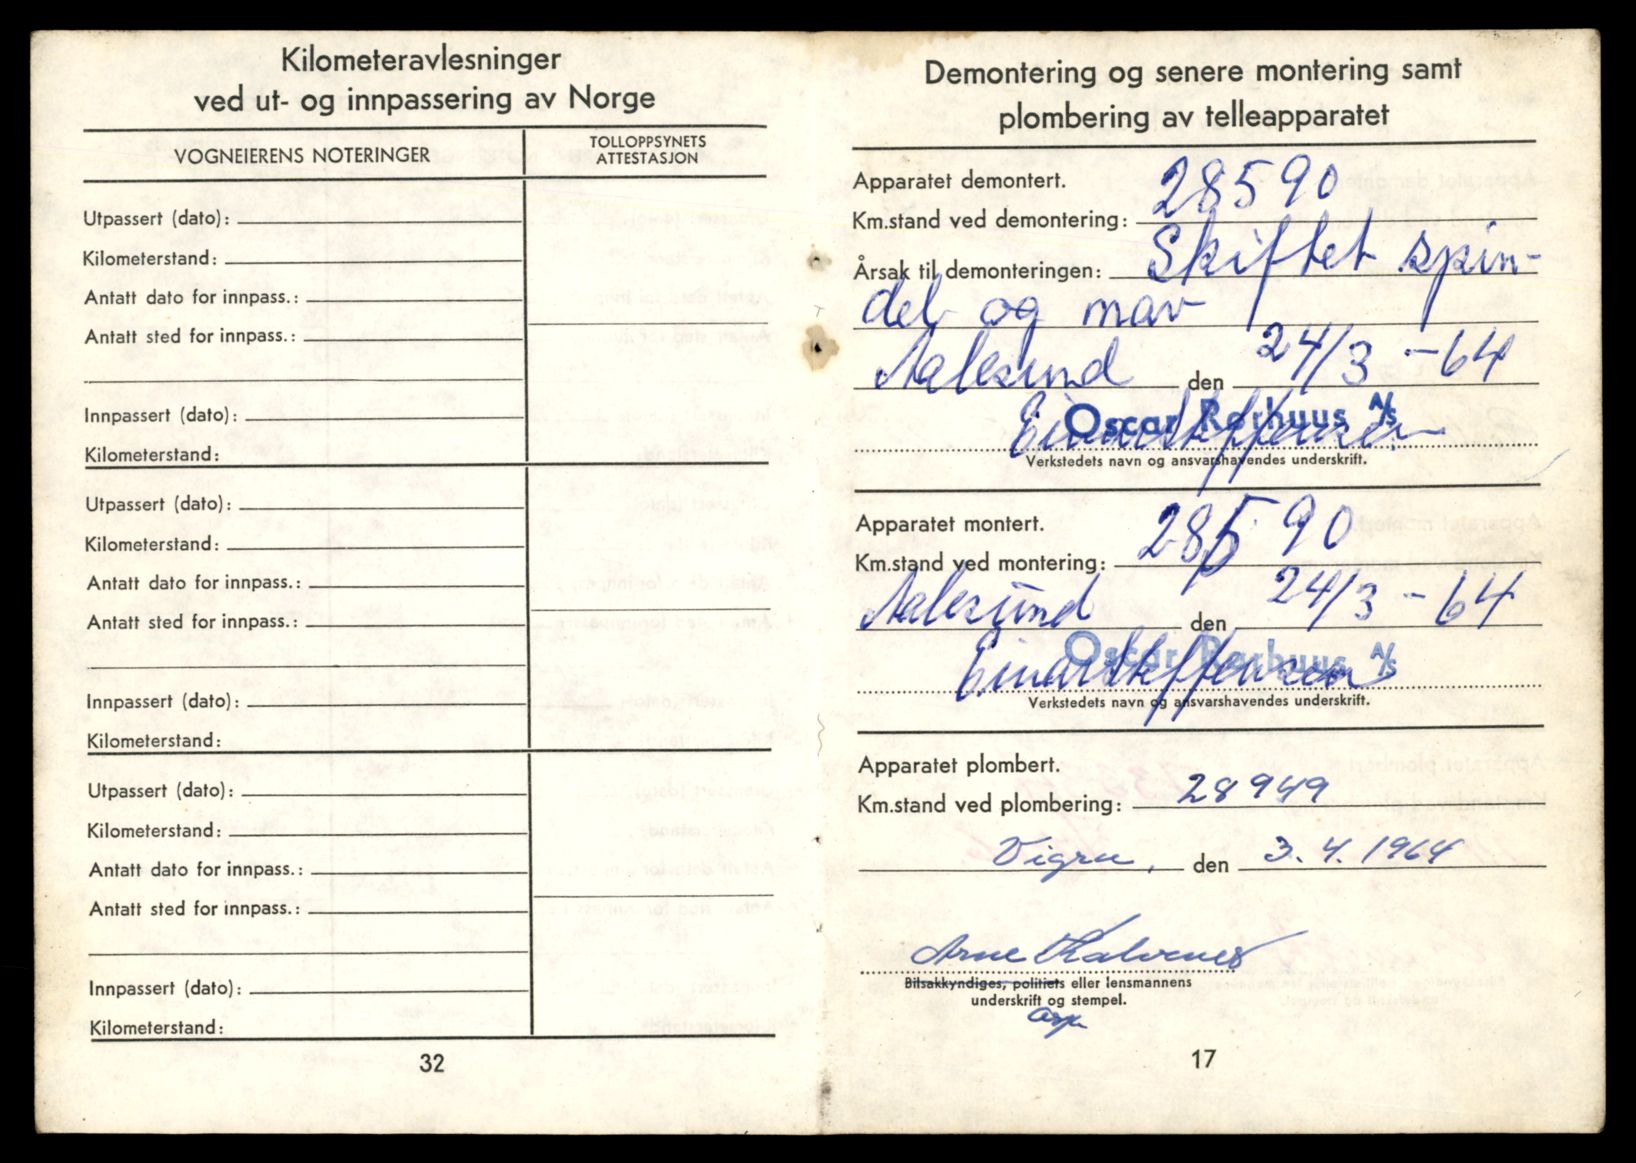 Kilometeravlesninger
ved ut- og innpassering av Norge
VOGNEIERENS NOTERINGER
TOLLOPPSYNETS
ATTESTASJON
Utpassert (dato):
Kilometerstand:
Antatt dato for innpass.:
Antatt sted for innpass.:
Innpassert (dato):
Kilometerstand:
Utpassert (dato):
Kilometerstand:
Antatt dato for innpass.:
Antatt sted for innpass.:
Innpassert (dato):
Kilometerstand:
Utpassert (dato):
Kilometerstand:
Antatt dato for innpass.:
Antatt sted for innpass.:
Innpassert (dato):
Kilometerstand:
32
Demontering og senere montering samt
plombering av telleapparatet
Apparatet demontert.
Km.stand ved demontering: 28590
Årsak til demonteringen: Skiftet spin-
del og nav
Aalesund den 24/3 -64
Oscar Rørhuus A/S
Einar Steffensen
Verkstedets navn og ansvarshavendes underskrift.
Apparatet montert.
Km.stand ved montering: 28590
Aalesund den 24/3 -64
Oscar Rørhuus A/S
Einar Steffensen
Verkstedets navn og ansvarshavendes underskrift.
Apparatet plombert.
Km.stand ved plombering: 28949
Vigra, den 3.4.1964
Arne Kalvenes
Bilsakkyndiges, politiets eller lensmannens
underskrift og stempel.
17